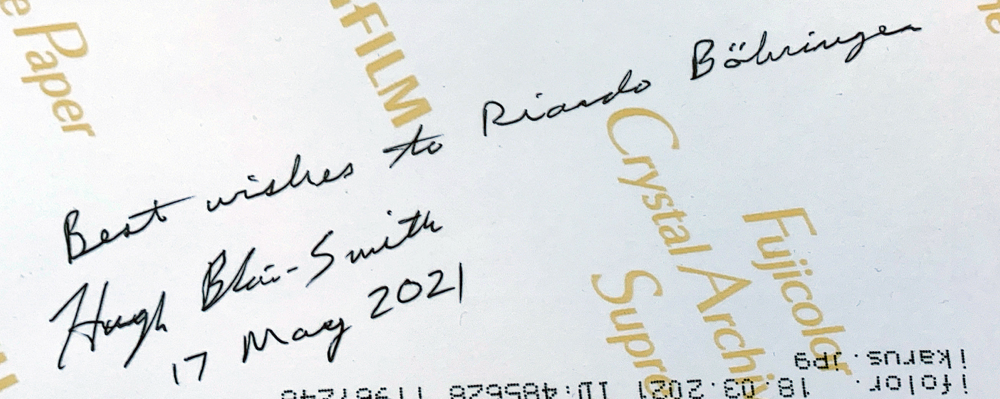 e Paper
FILM
Best wishes to Riardo Böhringer
Hugh Blair-Smith
17 May 2021
Crystal Archiv
Supre
Fujicolor
ifolor.
ikarus.jpg
18.03.2021 ID:485628